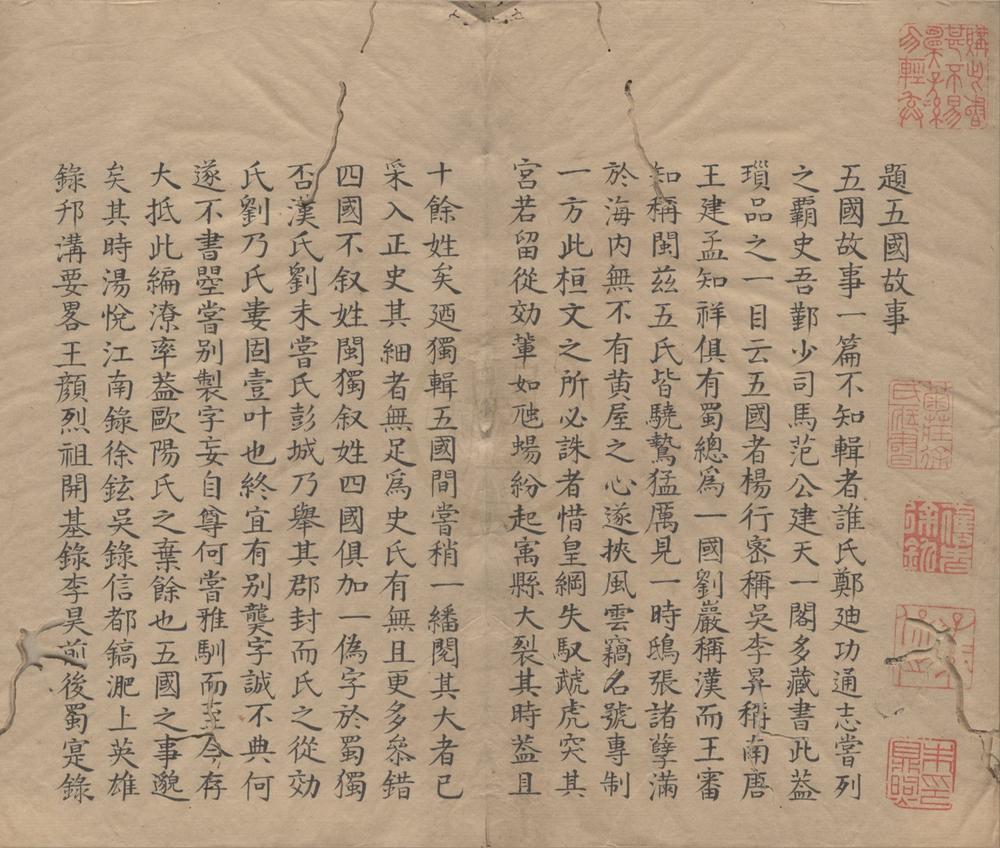 題五國故事
五國故事一篇不知輯者誰氏鄭廸功通志嘗列
之覇史吾鄞少司馬范公建天一閣多藏書此葢
瑣品之一目云五國者楊行宻稱吳李昇稱南唐
王建孟知祥俱有蜀總爲一國劉巖稱漢而王審
知稱閩兹五氏皆驍騺猛厲見一時鴟張諸孽滿
於海内無不有黄屋之心遂挾風雲竊名號專制
一方此桓文之所必誅者惜皇綱失馭虣虎突其
宮若留從効輩如虺蜴紛起寓縣大裂其時葢且
十餘姓矣廼獨輯五國間嘗稍一繙閱其大者已
采入正史其細者無足爲史氏有無且更多叅錯
四國不叙姓閩獨叙姓四國俱加一僞字於蜀獨
否漢氏劉未嘗氏彭城乃舉其郡封而氏之從効
氏劉乃氏婁固壹叶也終宜有别龑字誠不典何
遂不書曌嘗别製字妄自尊何嘗雅馴而至今存
大抵此編潦率葢歐陽氏之棄餘也五國之事邈
矣其時湯悅江南錄徐鉉吳錄信都鎬淝上英雄
錄邗溝要畧王顔烈祖開基錄李昊前後蜀寔錄
購此書
甚不易
遺子孫
勿輕棄